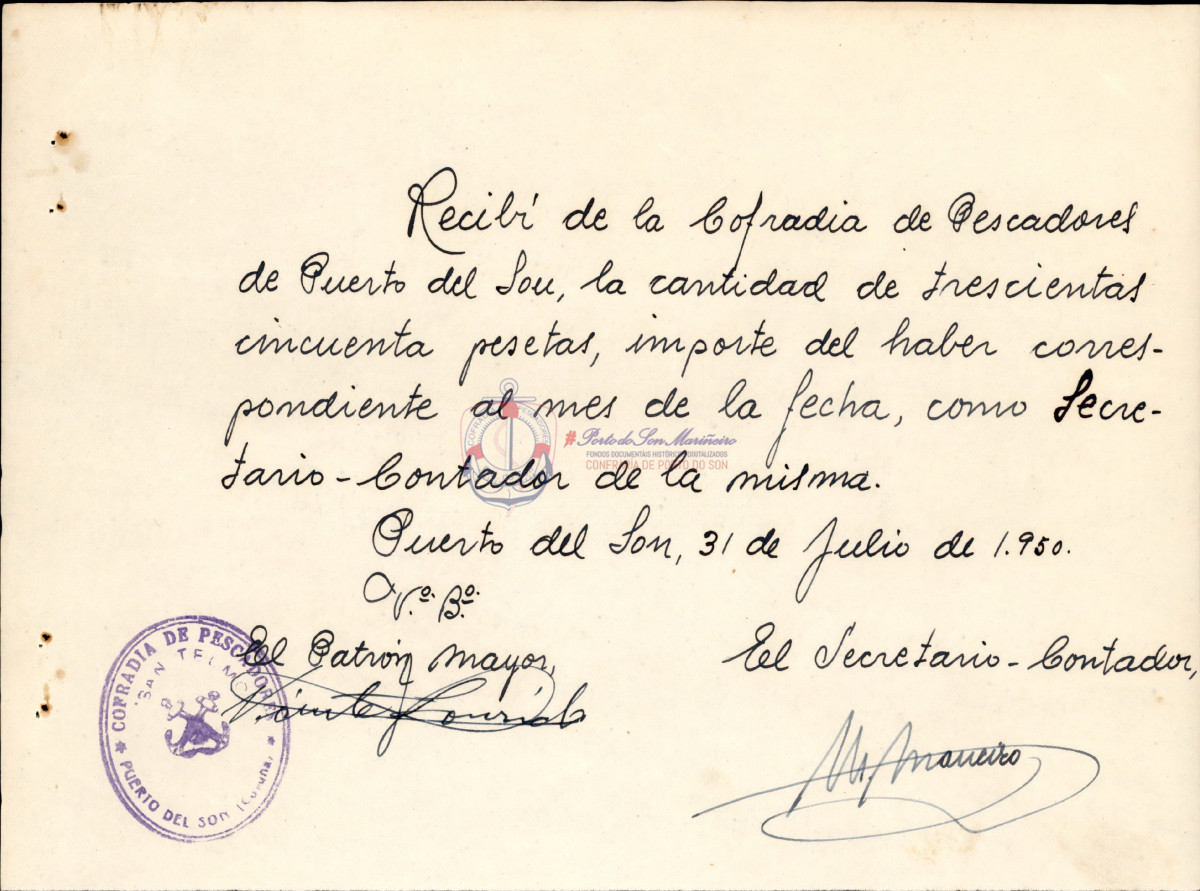 Recibí de la Cofradia de Pescadores
de Puerto del Son, la cantidad de trescientas
cincuenta pesetas, importe del haber corres-
pondiente al mes de la fecha, como Secre-
tario-Contador de la misma.
#PortodoSon Mariñeiro
FONDOS DOCUMENTAIS HISTÓRICOS DIXITALIZADOS
CONFRARÍA DE PORTO DO SON
Puerto del Son, 31 de Julio de 1.950.
Vº. Bº.
El Patrón mayor,
El Secretario-Contador,
Vicente
M. Maneiro
COFRADIA DE PESCADORES
"SAN TELMO"
PUERTO DEL SON (Coruña)